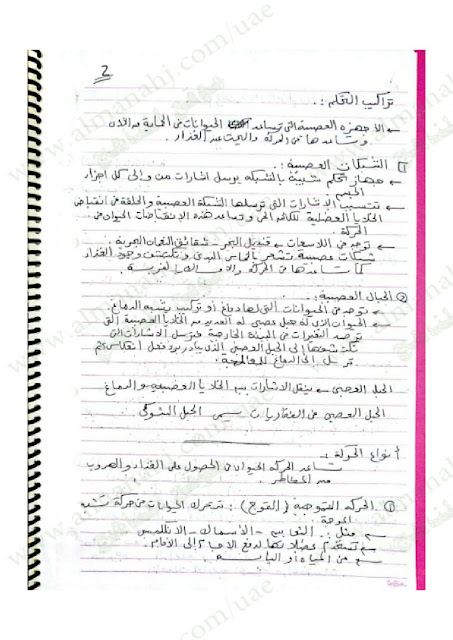 2
تراكيب التحكم :.
← الأجهزة العصبية التي تساعد الحيوانات في الحماية من الأذى
وتساعدها في الحركة والبحث عن الغذاء .
① الشبكات العصبية :.
← جهاز تحكم شبيه بالشبكة يوصل اشارات من وإلى كل اجزاء
الجسم
← تتسبب الإشارات التي توصلها الشبكة العصبية والحلقة في انقباض
الخلايا العضلية للكائن الحي وتساعد هذه الإنقباضات الحيوان في
الحركة .
← توجد في اللاسعات ← قنديل البحر - شقائق النعمان البحرية .
شبكات عصبية تشعر بالتماس البدني وتكتشف وجود الغذاء
كما تساعدها في الحركة والامساك بالفريسة .
② الحبال العصبية :.
← توجد في الحيوانات التي لها دماغ أو تركيب يشبه الدماغ
← الحيوان الذي له حبل عصبي له العديد من الخلايا العصبية التي
ترصد التغيرات في البيئة الخارجية فترسل الاشارات التي
تكتشفها إلى الحبل العصبي الذي يبادر برد فعل انعكاسي ثم
ترسل إلى الدماغ للمعالجة .
الحبل العصبي ← ينقل الاشارات بين الخلايا العصبية والدماغ
الحبل العصبي في الفقاريات يسمى الحبل الشوكي
أنواع الحركة :.
تساعد الحركة الحيوان في الحصول على الغذاء والهروب
من المخاطر .
① الحركة التموجية ( التموج ) : تتحرك الحيوانات في حركة تشبه
الموجة
← مثل : الثعابين - الأسماك - الانقليس
← تستخدم عضلاتها لدفع الأجسام إلى الأمام .
← في المياه أو اليابسة .
www.almanahj.com/uae